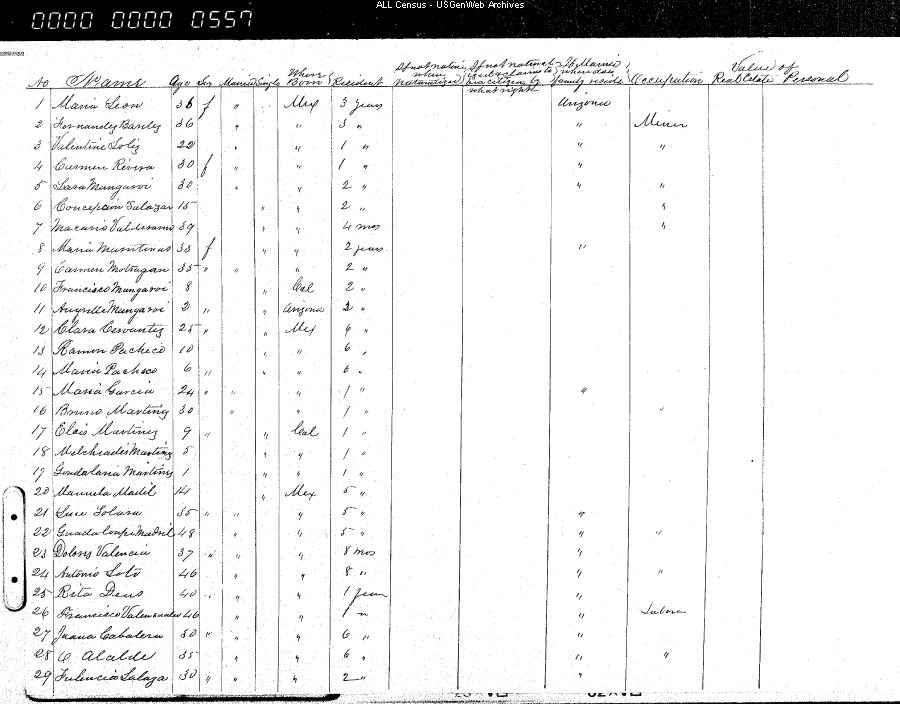 ALL Census - USGenWeb Archives
0000 0000 0557
No Name Age Sex Married Single Where Born Resident If not native when naturalized If not naturalized claims to citizen by what right If Married where does family reside Occupation Value of Real Estate Personal
1 Maria Leon 36 f " Mex 3 years Arizona
2 Fernandez 36 " " 3 " " Miner
3 Valentine Solis 22 " " 1 " " "
4 Carmen Rivera 30 f " " 1 " "
5 Lara Mungaroi 30 " " 2 " " "
6 Concepcion Salazar 15 " " 2 " "
7 Macario 39 " " 4 mos "
8 Maria 33 f " " 2 years "
9 Carmen 35 " " " 2 "
10 Francisco Mungaroi 8 " Cal 2 "
11 Mungaroi 2 " " Arizona 2 "
12 Clara Cervantez 25 " " Mex 6 "
13 Ramon Pacheco 10 " " 6 "
14 Maria Pacheco 6 " " " 6 "
15 Maria Garcia 24 " " " 1 " "
16 Bruno Martinez 30 " " 1 " "
17 Elois Martinez 9 " " Cal 1 "
18 Melchiades Martinez 5 " " 1 "
19 Martinez 1 " " 1 "
20 Manuela 14 " Mex 5 "
21 Luce 35 " " " 5 " "
22 Guadaloupe Madril 48 " " 5 " " "
23 Dolores Valencia 37 " " " 8 mos "
24 Antonio Soto 46 " " 8 " " "
25 Rita 40 " " " 1 year "
26 Francisco 46 " " 1 " " Laborer
27 Juana Cabalera 30 " " " 6 " "
28 Alalde 35 " " 6 " " "
29 Salaza 30 " " " 2 " "